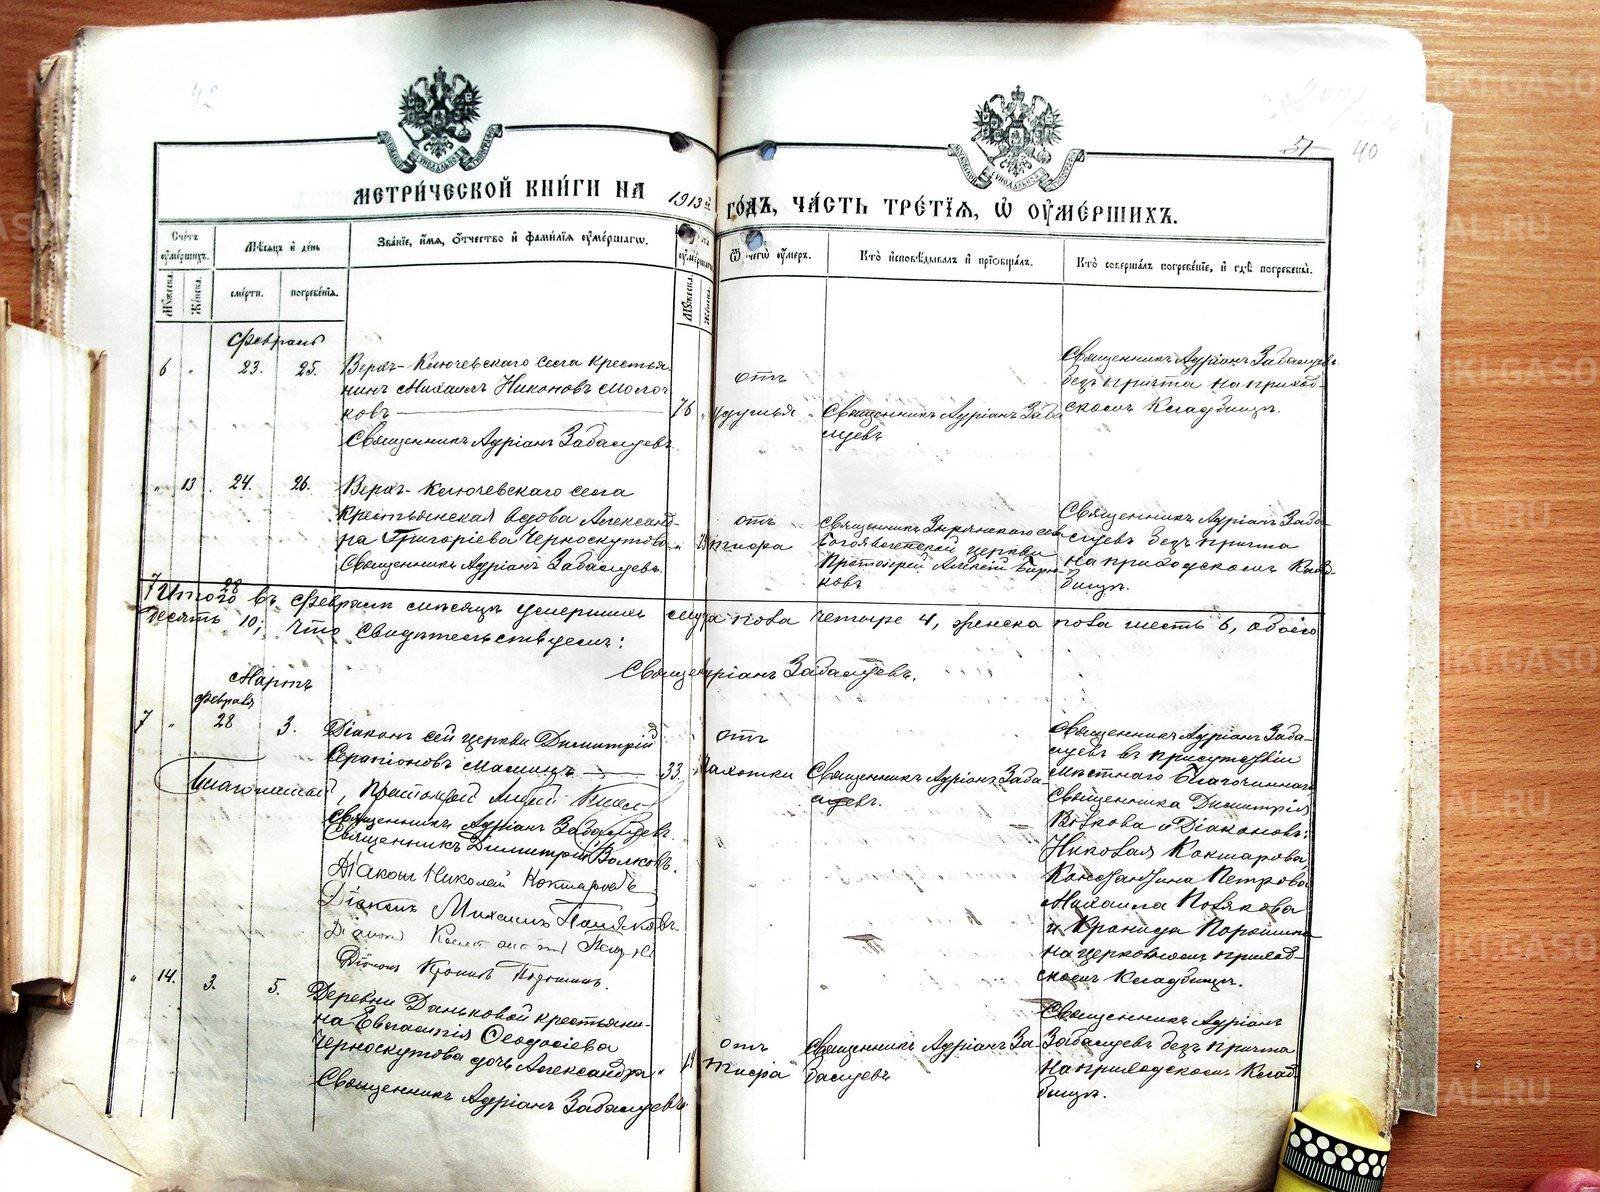 42
51 40
МЕТРИ́ЧЕСКОЙ КНИ́ГИ НА 1913 й ГО́ДЪ, ЧА́СТЬ ТРЕ́ТІѦ, Ѡ ОУМЕ́РШИХЪ.
Сче́тъ оуме́ршихъ.
Мѣсяцъ и де́нь
Зва́ніе, и́мя, о́тчество и фами́лія оуме́ршагѡ.
Ѿ чегѡ̀ оу́меръ.
Кто̀ исповѣ́дывалъ и пріобща́лъ.
Кто̀ соверша́лъ погребе́ніе, и гдѣ̀ погребены̀.
Му́жеска. Же́нска.
сме́рти. погребе́нія.
Му́жеска. Же́нска.
Февраль
6 " 23. 25.
Верхъ-Ключевскаго села крестья-
нинъ Михаилъ Никоновъ Молоч-
ковъ
Священникъ Адріанъ Забалуевъ
76 "
отъ
удушья
Священникъ Адріанъ Заба-
луевъ
Священникъ Адріанъ Забалуевъ
безъ причта на приход-
скомъ кладбищѣ.
" 13 24. 26.
Верхъ-Ключевскаго села
крестьянская вдова Александ-
ра Григоріева Черноскутова
Священникъ Адріанъ Забалуевъ.
отъ
Священникъ
Богоявленской церкви
Протоіерей Алексій
ковъ
Священникъ Адріанъ Заба-
луевъ безъ причта
на приходскомъ клад-
бищѣ.
7 28
Итого въ Февралѣ мѣсяцѣ умершихъ муж. пола четыре 4, женска пола шесть 6, обоего
десять 10; что свидѣтельствуемъ:
Священ. Адріанъ Забалуевъ.
Мартъ
февраля
7 " 28 3.
Діаконъ сей церкви Димитрій
Серапіоновъ
33.
Благочинный, Протоіерей
Священникъ Адріанъ Забалуевъ.
Священникъ Димитрій Волковъ.
Діаконъ Николай Кокшаровъ
Діаконъ Михаилъ Поляковъ
Діаконъ Константинъ Петровъ
Діаконъ Кронидъ Порошинъ.
отъ
чахотки
Священникъ Адріанъ Заба-
луевъ.
Священникъ Адріанъ Заба-
луевъ въ присутствіи
мѣстнаго Благочиннаго
Священника Димитрія
Волкова и Діаконовъ:
Николая Кокшарова
Константина Петрова
Михаила Полякова
и Кронида Порошина
на церковномъ приход-
скомъ кладбищѣ.
" 14. 3. 5.
Деревни Даньковой крестьяни-
на Евгенія Ѳеодосіева
Черноскутова дочь Александра
Священникъ Адріанъ Забалуевъ
отъ
Священникъ Адріанъ За-
балуевъ
Священникъ Адріанъ
Забалуевъ безъ причта
на приходскомъ клад-
бищѣ.